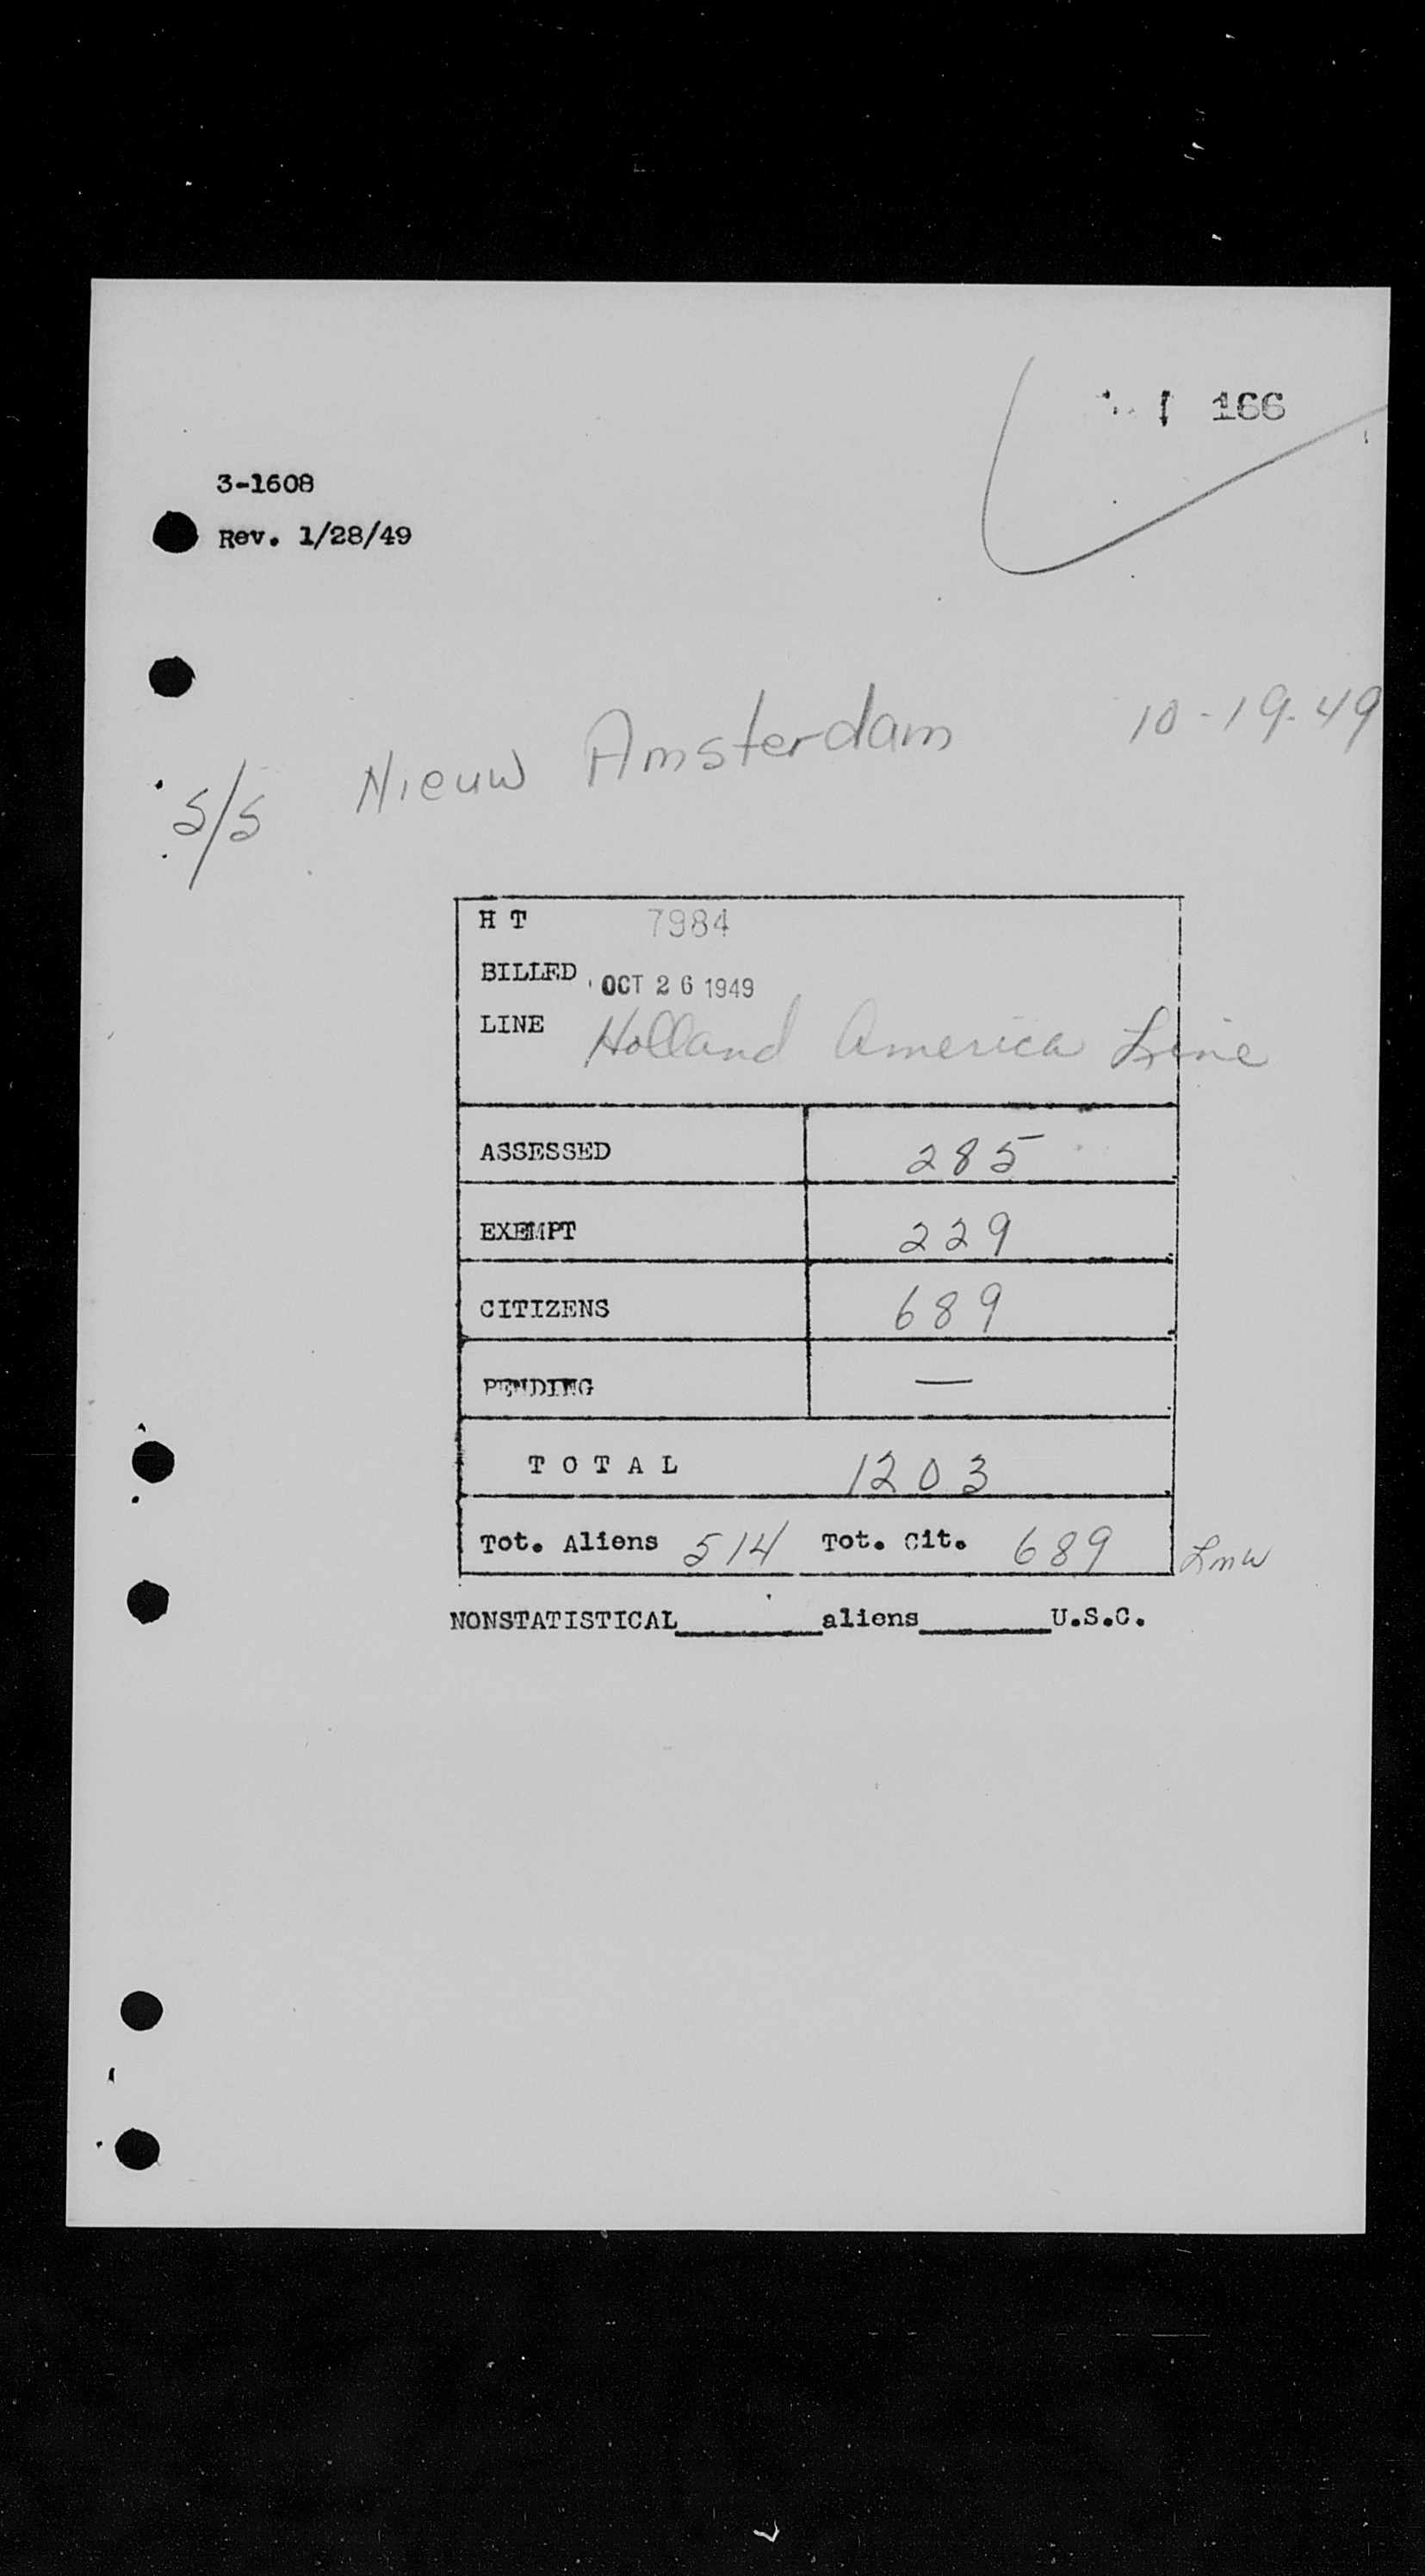 166
3-1608
Rev. 1/28/49
S/S Nieuw Amsterdam 10-19-49
H T 7984
BILLED OCT 26 1949
LINE Holland America Line
ASSESSED 285
EXEMPT 229
CITIZENS 689
PENDING —
TOTAL 1203
Tot. Aliens 514 Tot. Cit. 689 Lmw
NONSTATISTICAL________aliens________U.S.C.